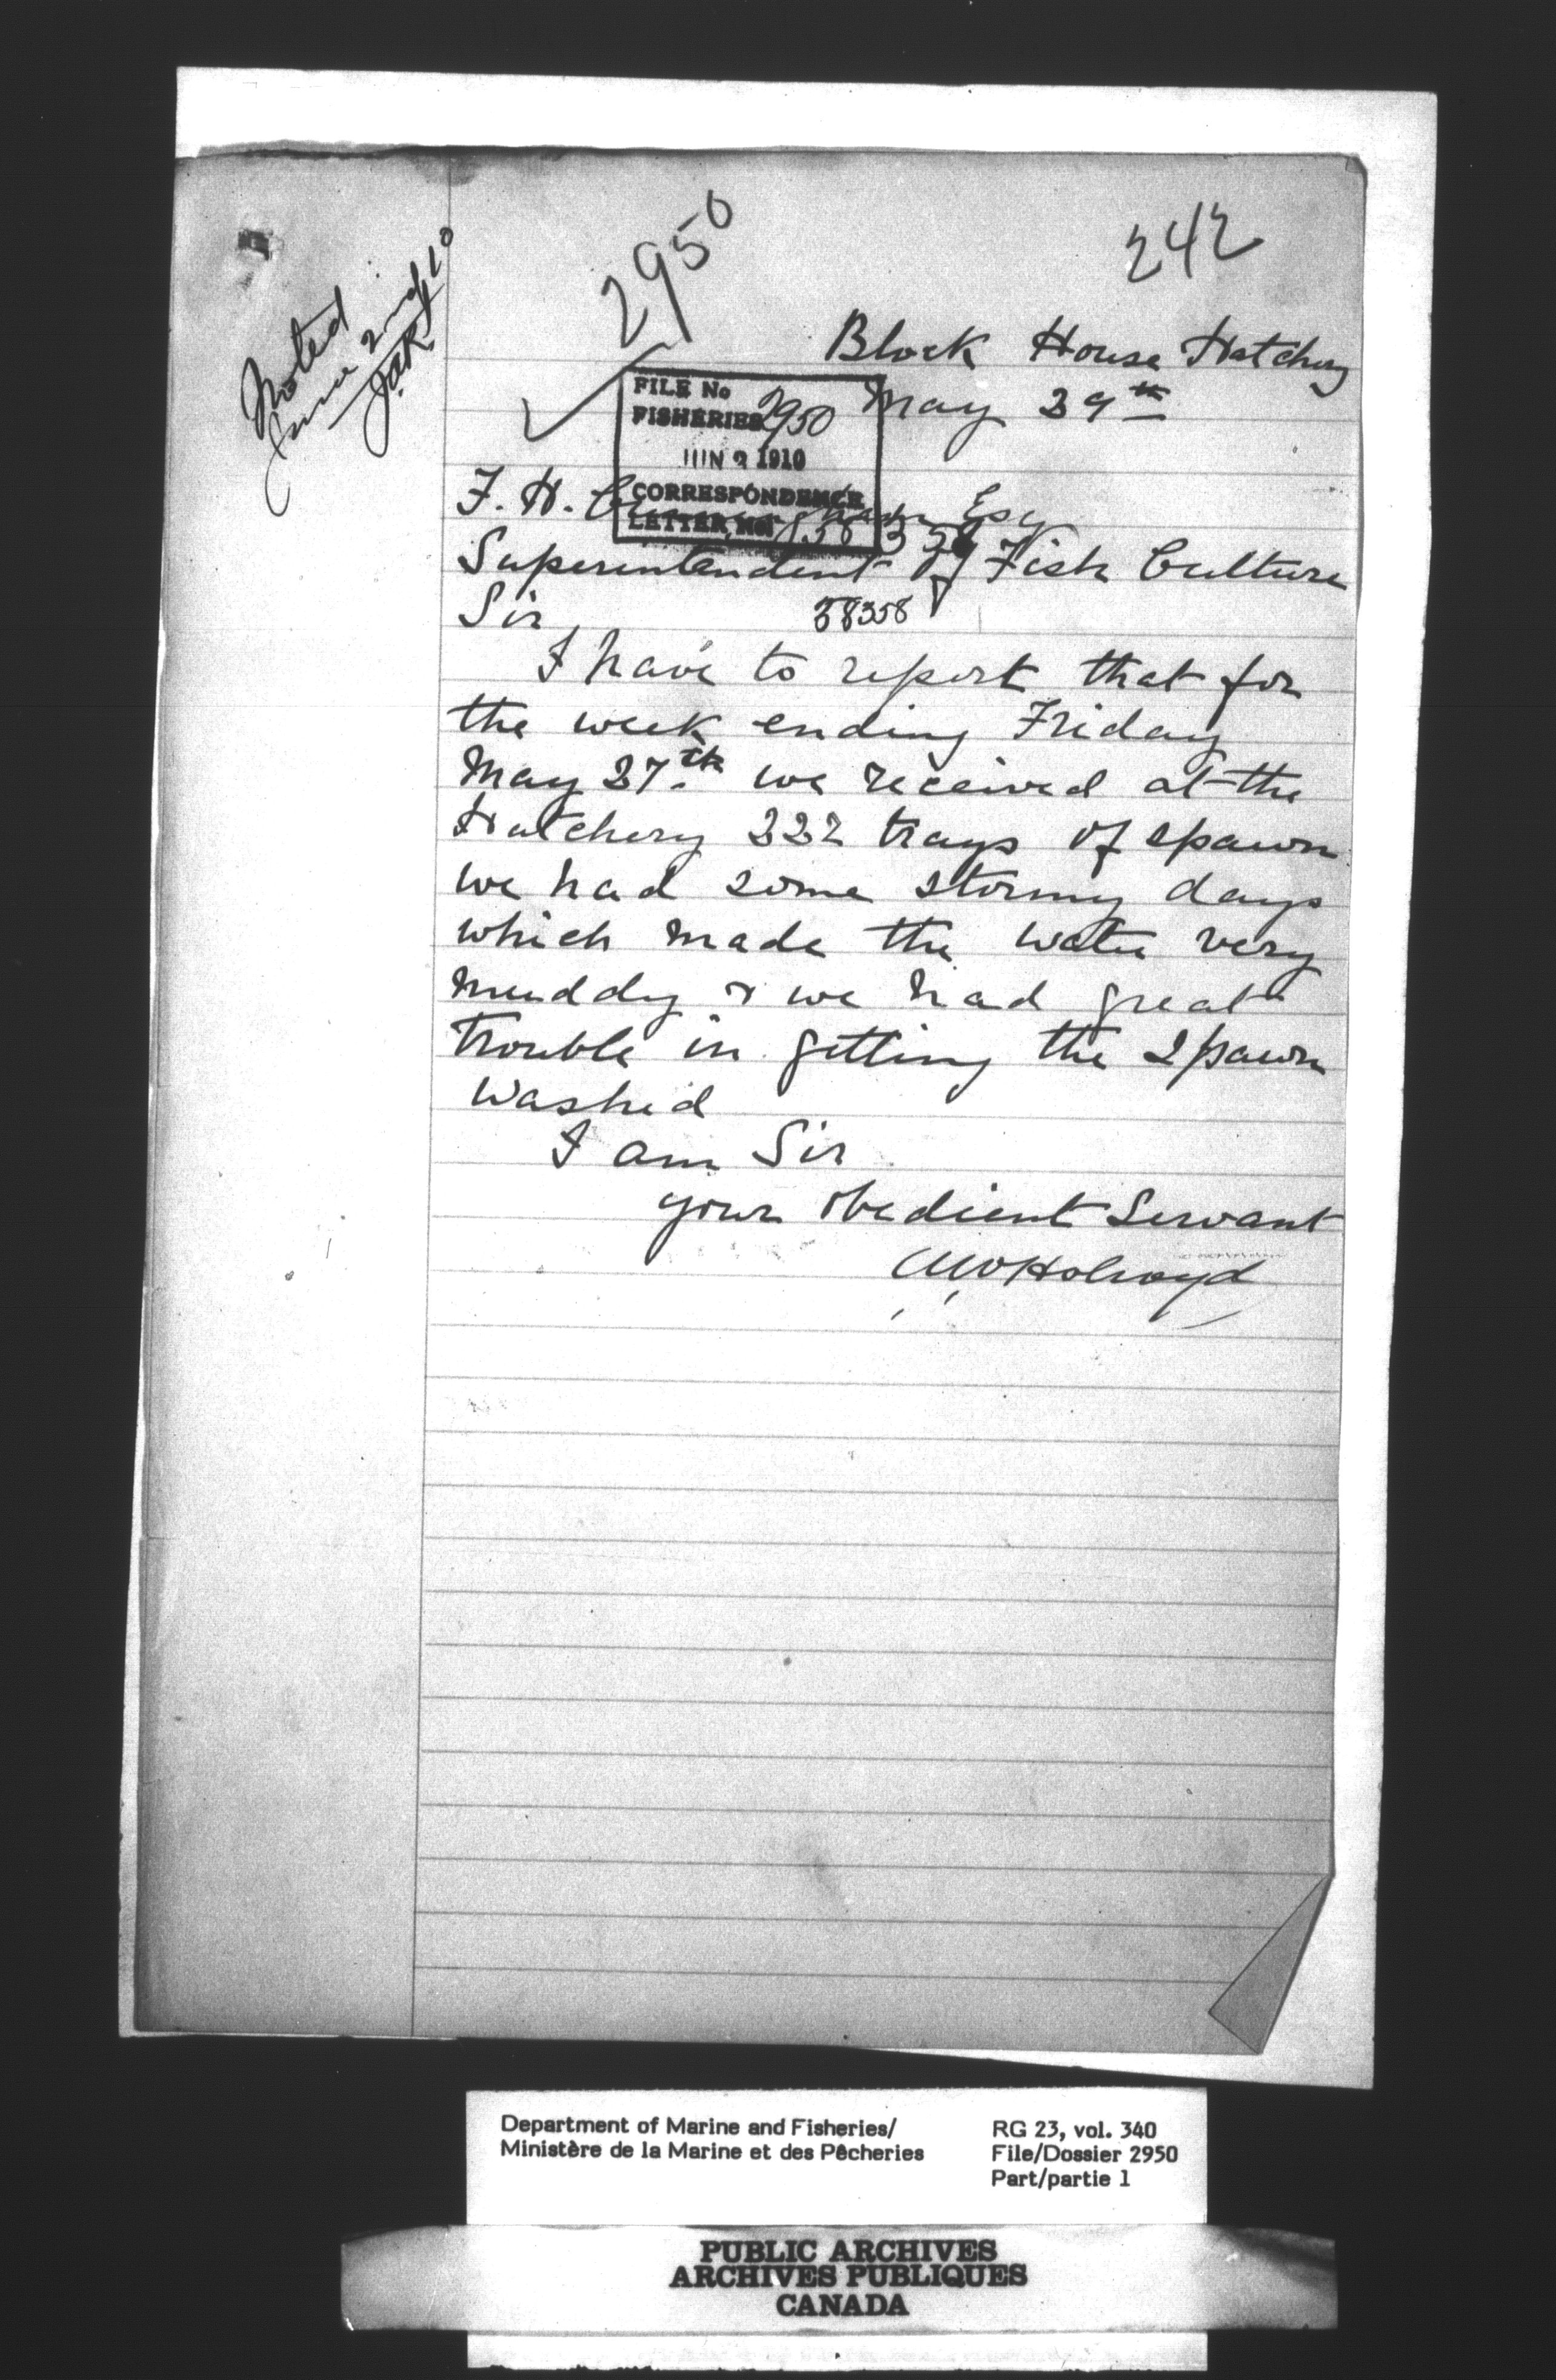 2950
242
Noted
June 2nd/10
JAR
Block House Hatchery
May 29th
FILE No
FISHERIES 2950
JUN 2 1910
CORRESPONDENCE
LETTER No.
F. H. Esq
Superintendent of Fish Culture
Sir 38358
I have to report that for
the week ending Friday
May 27th we received at the
Hatchery 222 trays of spawn
we had some stormy days
which made the water very
muddy & we had great
trouble in getting the spawn
washed
I am Sir
your obedient Servant
Holroyd
Department of Marine and Fisheries/
Ministère de la Marine et des Pêcheries
RG 23, vol. 340
File/Dossier 2950
Part/partie 1
PUBLIC ARCHIVES
ARCHIVES PUBLIQUES
CANADA